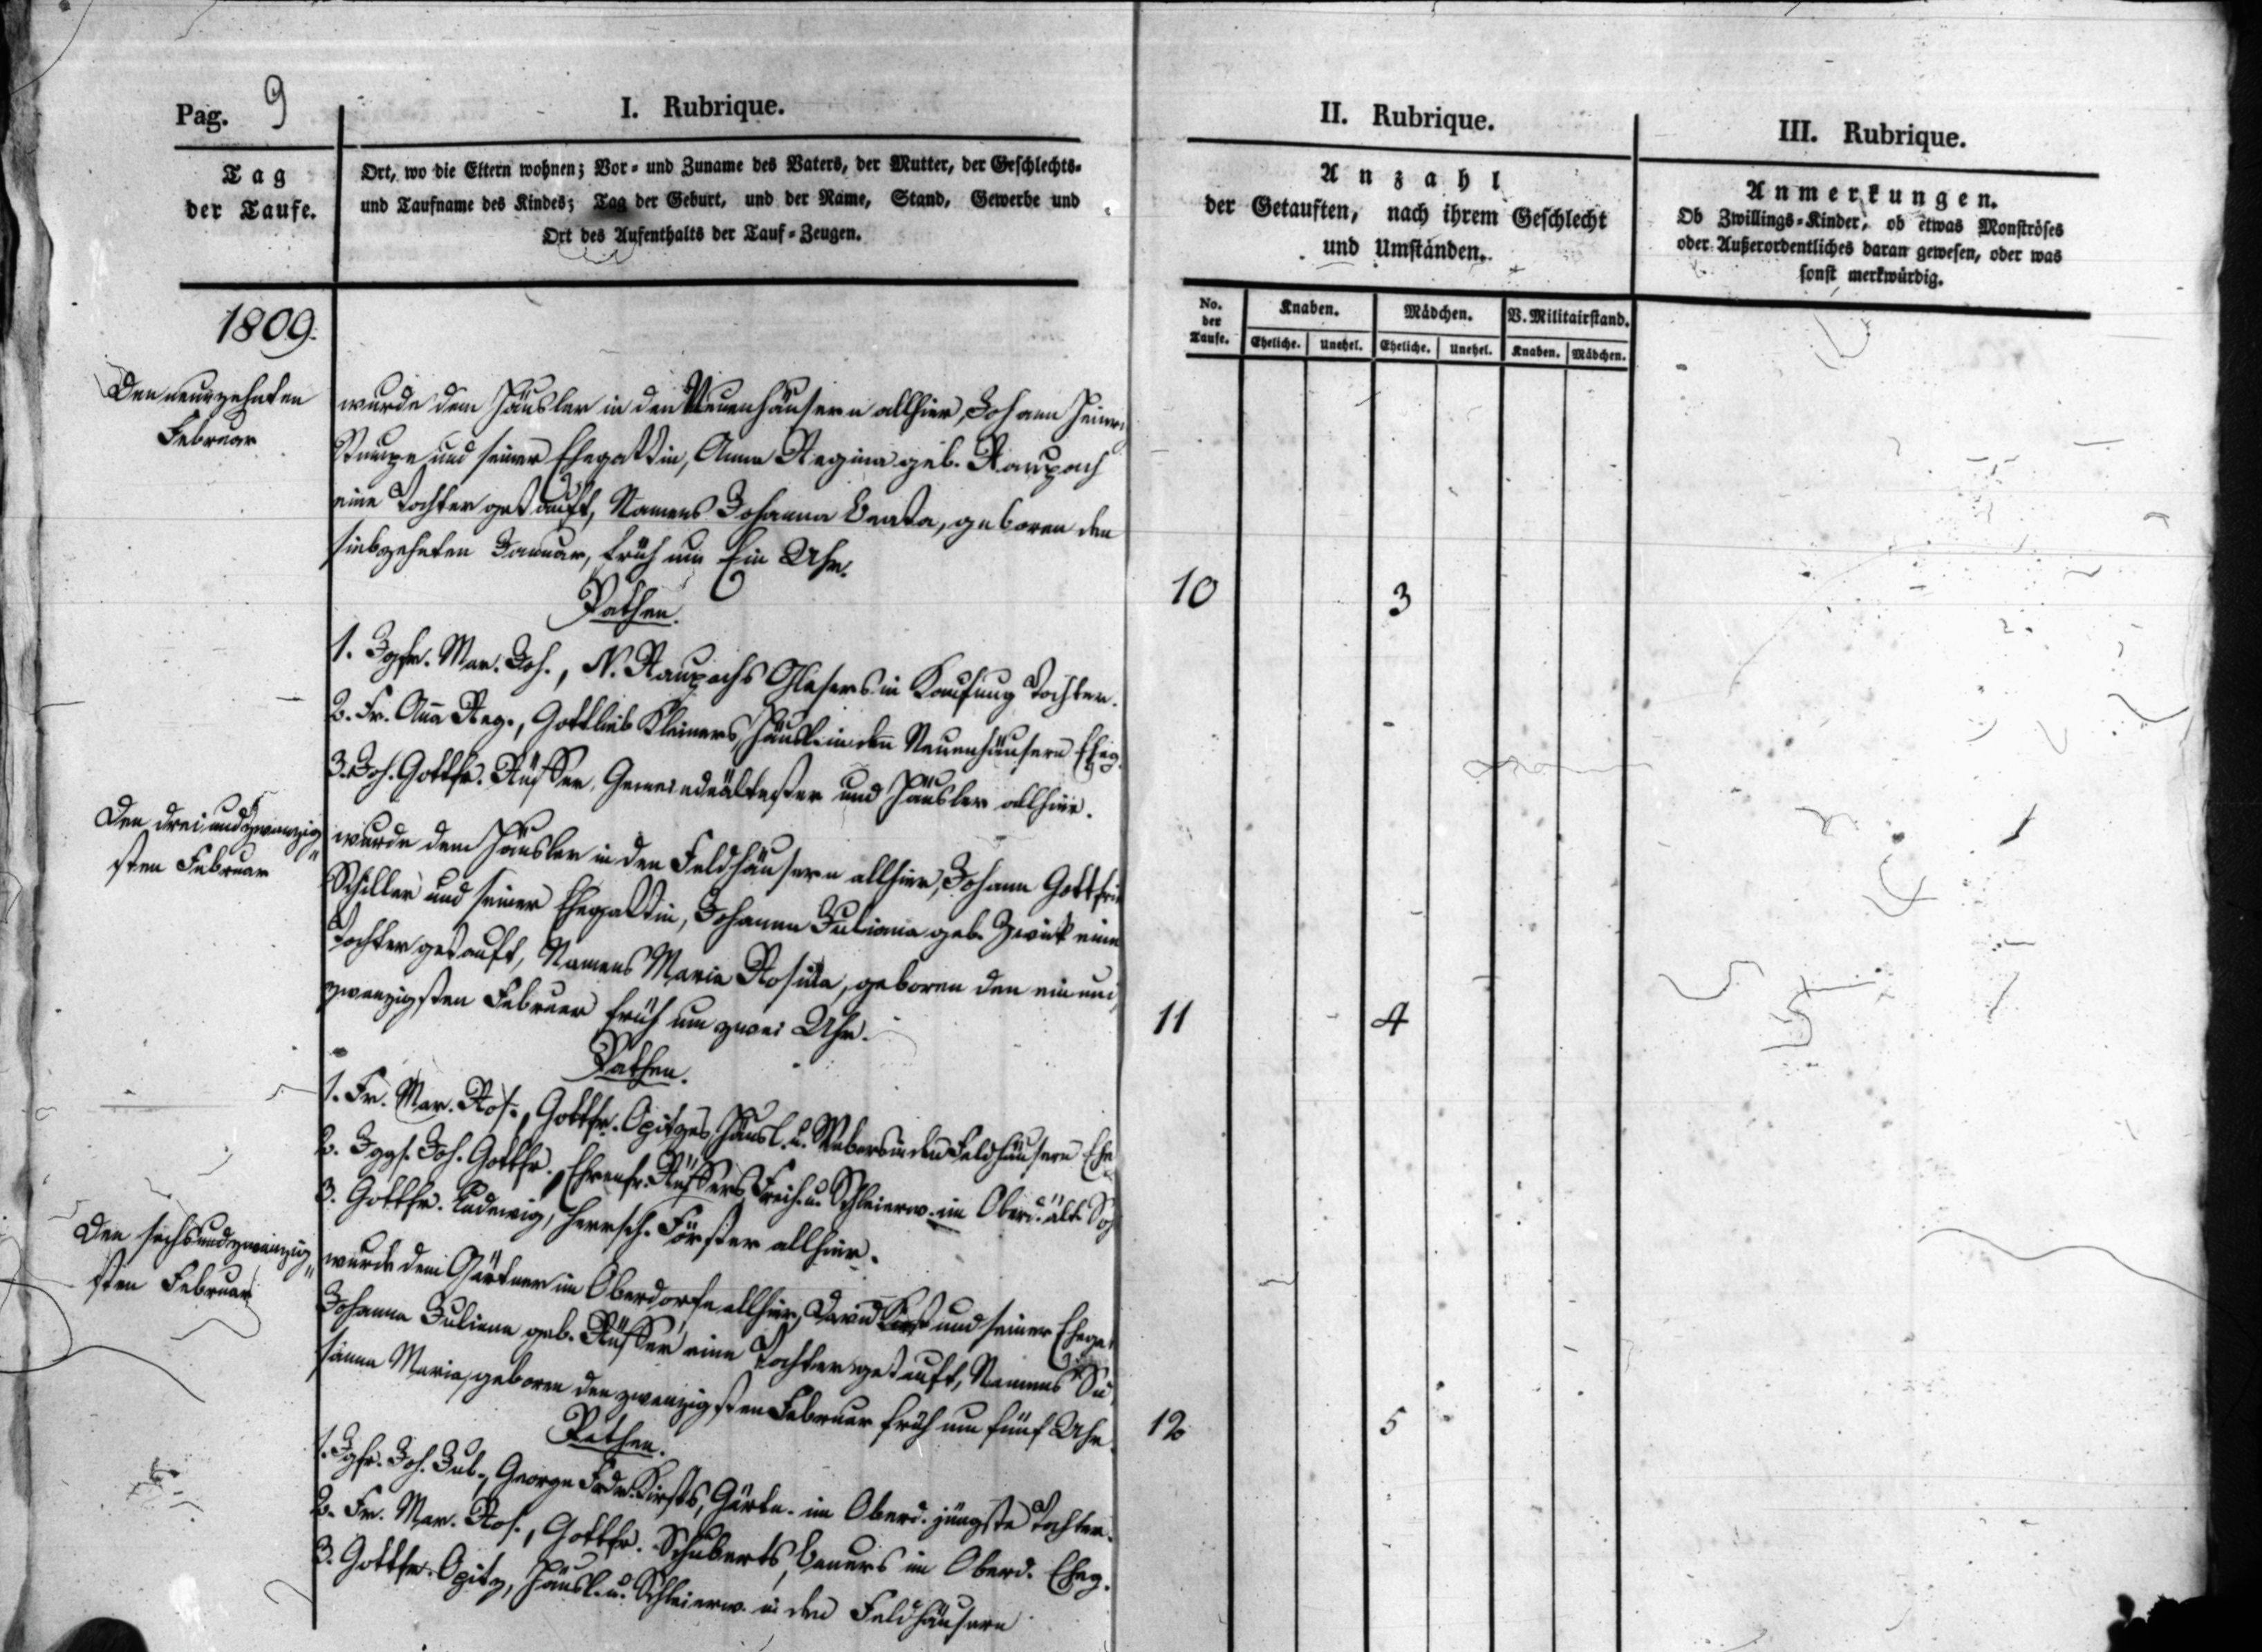 Pag. 9
I. Rubrique.
II. Rubrique.
III. Rubrique.
Tag
der Taufe.
Ort, wo die Eltern wohnen; Vor- und Zuname des Vaters, der Mutter, der Geschlechts-
und Taufname des Kindes; Tag der Geburt, und der Name, Stand, Gewerbe und
Ort des Aufenthalts der Tauf-Zeugen.
Anzahl
der Getauften, nach ihrem Geschlecht
und Umständen.
Anmerkungen.
Ob Zwillings-Kinder, ob etwas Monströses
oder Außerordentliches daran gewesen, oder was
sonst merkwürdig.
No.
der
Taufe.
Knaben.
Mädchen.
V. Militairstand.
Eheliche.
Unehel.
Eheliche.
Unehel.
Knaben.
Mädchen.
1809.
Den neunzehnten
Februar
wurde dem Häusler in den Neuenhäusern allhier, Johann
und seiner Ehegattin, Anna Regina geb. Raupach
eine Tochter getauft, Namens Johanna Beata, geboren den
siebzehnten Januar, früh um Ein Uhr.
10
3
Pathen.
1. Jgfr. Mar. Joh., N. Raupachs Glasers in Kaufung Tochter.
2. Fr. Aña Reg., Gottlieb Kleiners, Häusl. in den Neuenhäusern Eheg.
3. Joh. Gottfr. Rüffer, Gemeindeältester und Häusler allhier.
Den dreiundzwanzig
sten Februar
wurde dem Häusler in den Feldhäusern allhier, Johann Gottfrie
Schiller und seiner Ehegattin, Johanna Juliana geb. Zwick eine
Tochter getauft, Namens Maria Rosina, geboren den ein und
zwanzigsten Februar früh um zwei Uhr.
11
4
Pathen.
1. Fr. Mar. Ros., Gottfr. Opitzes, Häusl. u. Webers in den Feldhäusern Ehe
2. Jggs. Joh. Gottfr., Ehrenfr. Rüffers, Freih. u. Schleierw. im Oberd. ält. Soh
3. Gottfr. Ludewig, herrsch. Förster allhier.
Den sechsundzwanzig
sten Februar
wurde dem Gärtner im Oberdorfe allhier, David und seiner Ehegat
Johanna Juliana geb. Rüffer eine Tochter getauft, Namens Su
sanna Maria, geboren den zwanzigsten Februar früh um fünf Uhr.
12
5
Pathen.
1. Jgfr. Joh. Jul., George Frdr. Kirsts, Gärtn. im Oberd. jüngste Tochter.
2. Fr. Mar. Ros., Gottfr. Schuberts, Bauers im Oberd. Eheg.
3. Gottfr. Opitz, Häusl. u. Schleierw. in den Feldhäusern